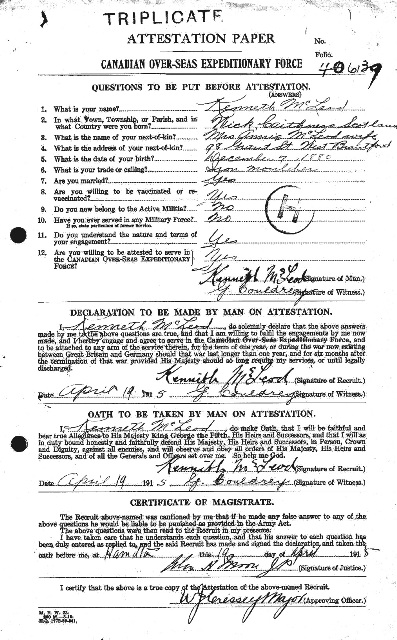 TRIPLICATE
ATTESTATION PAPER
No.
Folio.
CANADIAN OVER-SEAS EXPEDITIONARY FORCE
40639
QUESTIONS TO BE PUT BEFORE ATTESTATION.
(ANSWERS)
1. What is your name? Kenneth McLeod
2. In what Town, Township, or Parish, and in what Country were you born? Wick Caithness Scotland
3. What is the name of your next-of-kin? Mrs Annie McLeod wife
4. What is the address of your next-of-kin? 98 Grand St West Brantford
5. What is the date of your birth? December 7
6. What is your trade or calling? Iron moulder
7. Are you married? Yes
8. Are you willing to be vaccinated or re-vaccinated? Yes
9. Do you now belong to the Active Militia? No
10. Have you ever served in any Military Force? No
If so, state particulars of former Service.
11. Do you understand the nature and terms of your engagement? Yes
12. Are you willing to be attested to serve in the CANADIAN OVER-SEAS EXPEDITIONARY FORCE? Yes
Kenneth McLeod (Signature of Man.)
G. Couldrey (Signature of Witness.)
DECLARATION TO BE MADE BY MAN ON ATTESTATION.
I, Kenneth McLeod, do solemnly declare that the above answers
made by me to the above questions are true, and that I am willing to fulfil the engagements by me now
made, and I hereby engage and agree to serve in the Canadian Over-Seas Expeditionary Force, and
to be attached to any arm of the service therein, for the term of one year, or during the war now existing
between Great Britain and Germany should that war last longer than one year, and for six months after
the termination of that war provided His Majesty should so long require my services, or until legally
discharged.
Kenneth McLeod (Signature of Recruit.)
Date April 19 1915 G. Couldrey (Signature of Witness.)
OATH TO BE TAKEN BY MAN ON ATTESTATION.
I, Kenneth McLeod, do make Oath, that I will be faithful and
bear true Allegiance to His Majesty King George the Fifth, His Heirs and Successors, and that I will as
in duty bound honestly and faithfully defend His Majesty, His Heirs and Successors, in Person, Crown
and Dignity, against all enemies, and will observe and obey all orders of His Majesty, His Heirs and
Successors, and of all the Generals and Officers set over me. So help me God.
Kenneth McLeod (Signature of Recruit.)
Date April 19 1915 G. Couldrey (Signature of Witness.)
CERTIFICATE OF MAGISTRATE.
The Recruit above-named was cautioned by me that if he made any false answer to any of the
above questions he would be liable to be punished as provided in the Army Act.
The above questions were then read to the Recruit in my presence.
I have taken care that he understands each question, and that his answer to each question has
been duly entered as replied to, and the said Recruit has made and signed the declaration and taken the
oath before me, at Hamilton this 19 day of April 1915
(Signature of Justice.)
I certify that the above is a true copy of the Attestation of the above-named Recruit.
Major (Approving Officer.)